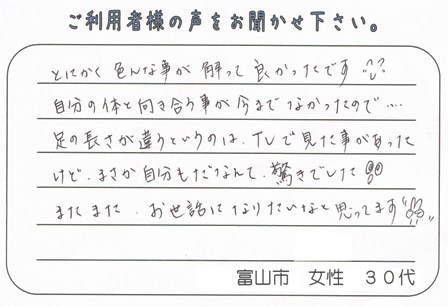 ご利用者様の声をお聞かせ下さい。
とにかく色んな事が解って良かったです
自分の体と向き合う事が今までなかったので....
足の長さが違うというのは、TVで見た事があった
けど、まさか自分もだなんて、驚きでした
またまた、お世話になりたいなと思ってます
富山市 女性 30代